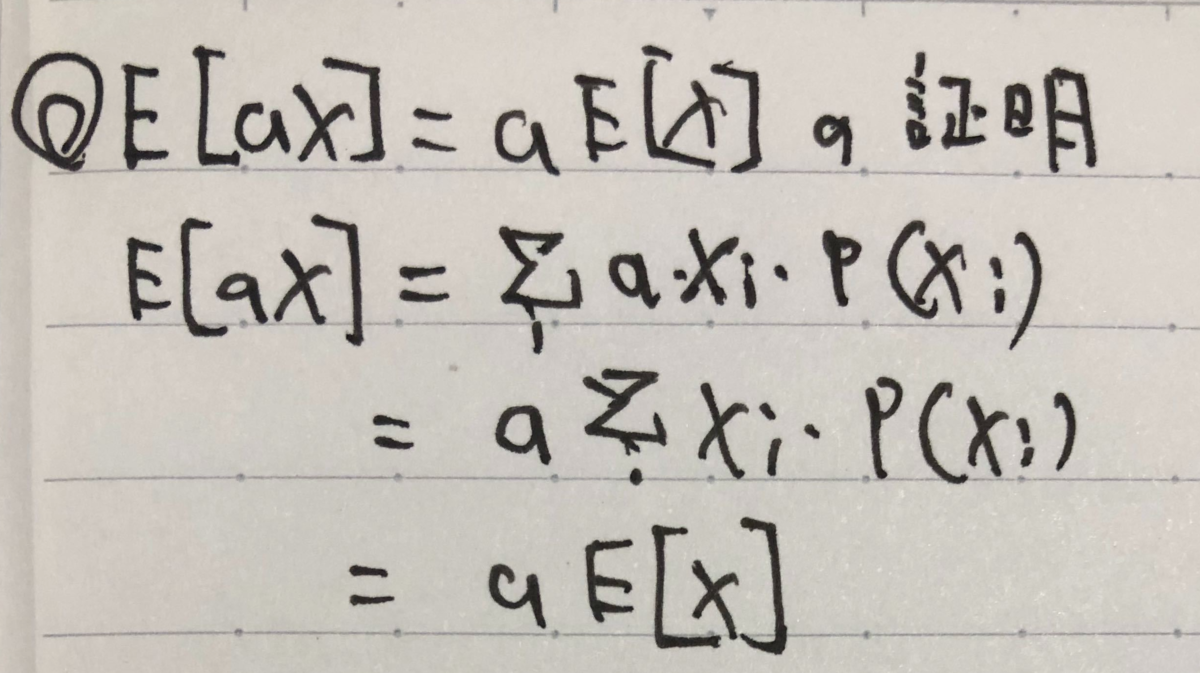 ◎E[aX] = aE[X] の 証明
E[aX] = Σi a・Xi・P(Xi)
= a Σi Xi・P(Xi)
= a E[X]